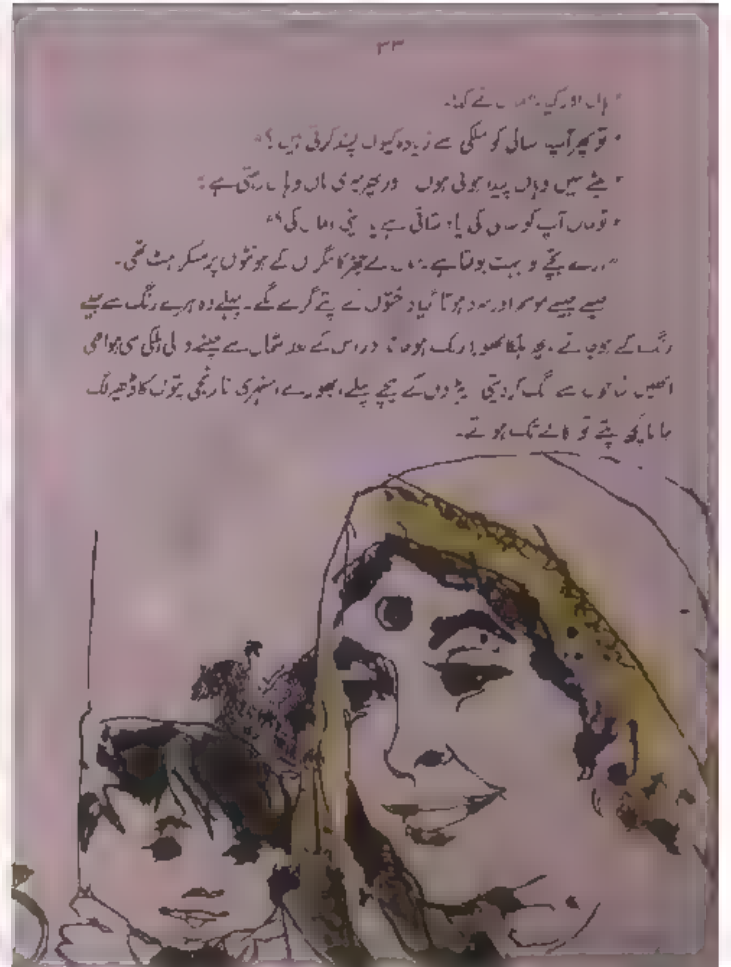 ۳۳
"ہاں اور کیا" نے کہا۔
"تو پھر آپ سانی کو ملکی سے زیادہ کیوں پسند کرتی ہیں؟"
میں وہاں پیدا ہوئی ہوں اور پھر میری ماں وہاں رہتی ہے۔
"تو ماں آپ کو کی یاد ستاتی ہے یا اپنی اماں کی؟"
"ارے بچے تو بہت بولتا ہے۔" کے ہونٹوں پر مسکراہٹ تھی۔
جیسے جیسے موسم اور سرد ہوتا گیا درختوں کے پتے گرنے لگے۔ پہلے وہ ہرے رنگ سے پیلے
رنگ کے ہو جاتے، پھر ہلکا بھورا رنگ ہو جاتا اور اس کے بعد شمال سے چلنے والی ہلکی سی ہوا بھی
انھیں شاخوں سے الگ کر دیتی۔ پیڑوں کے نیچے پیلے، بھورے، سنہری نارنجی پتوں کا ڈھیر لگ
جاتا، کچھ پتے تو کالے تک ہوتے۔